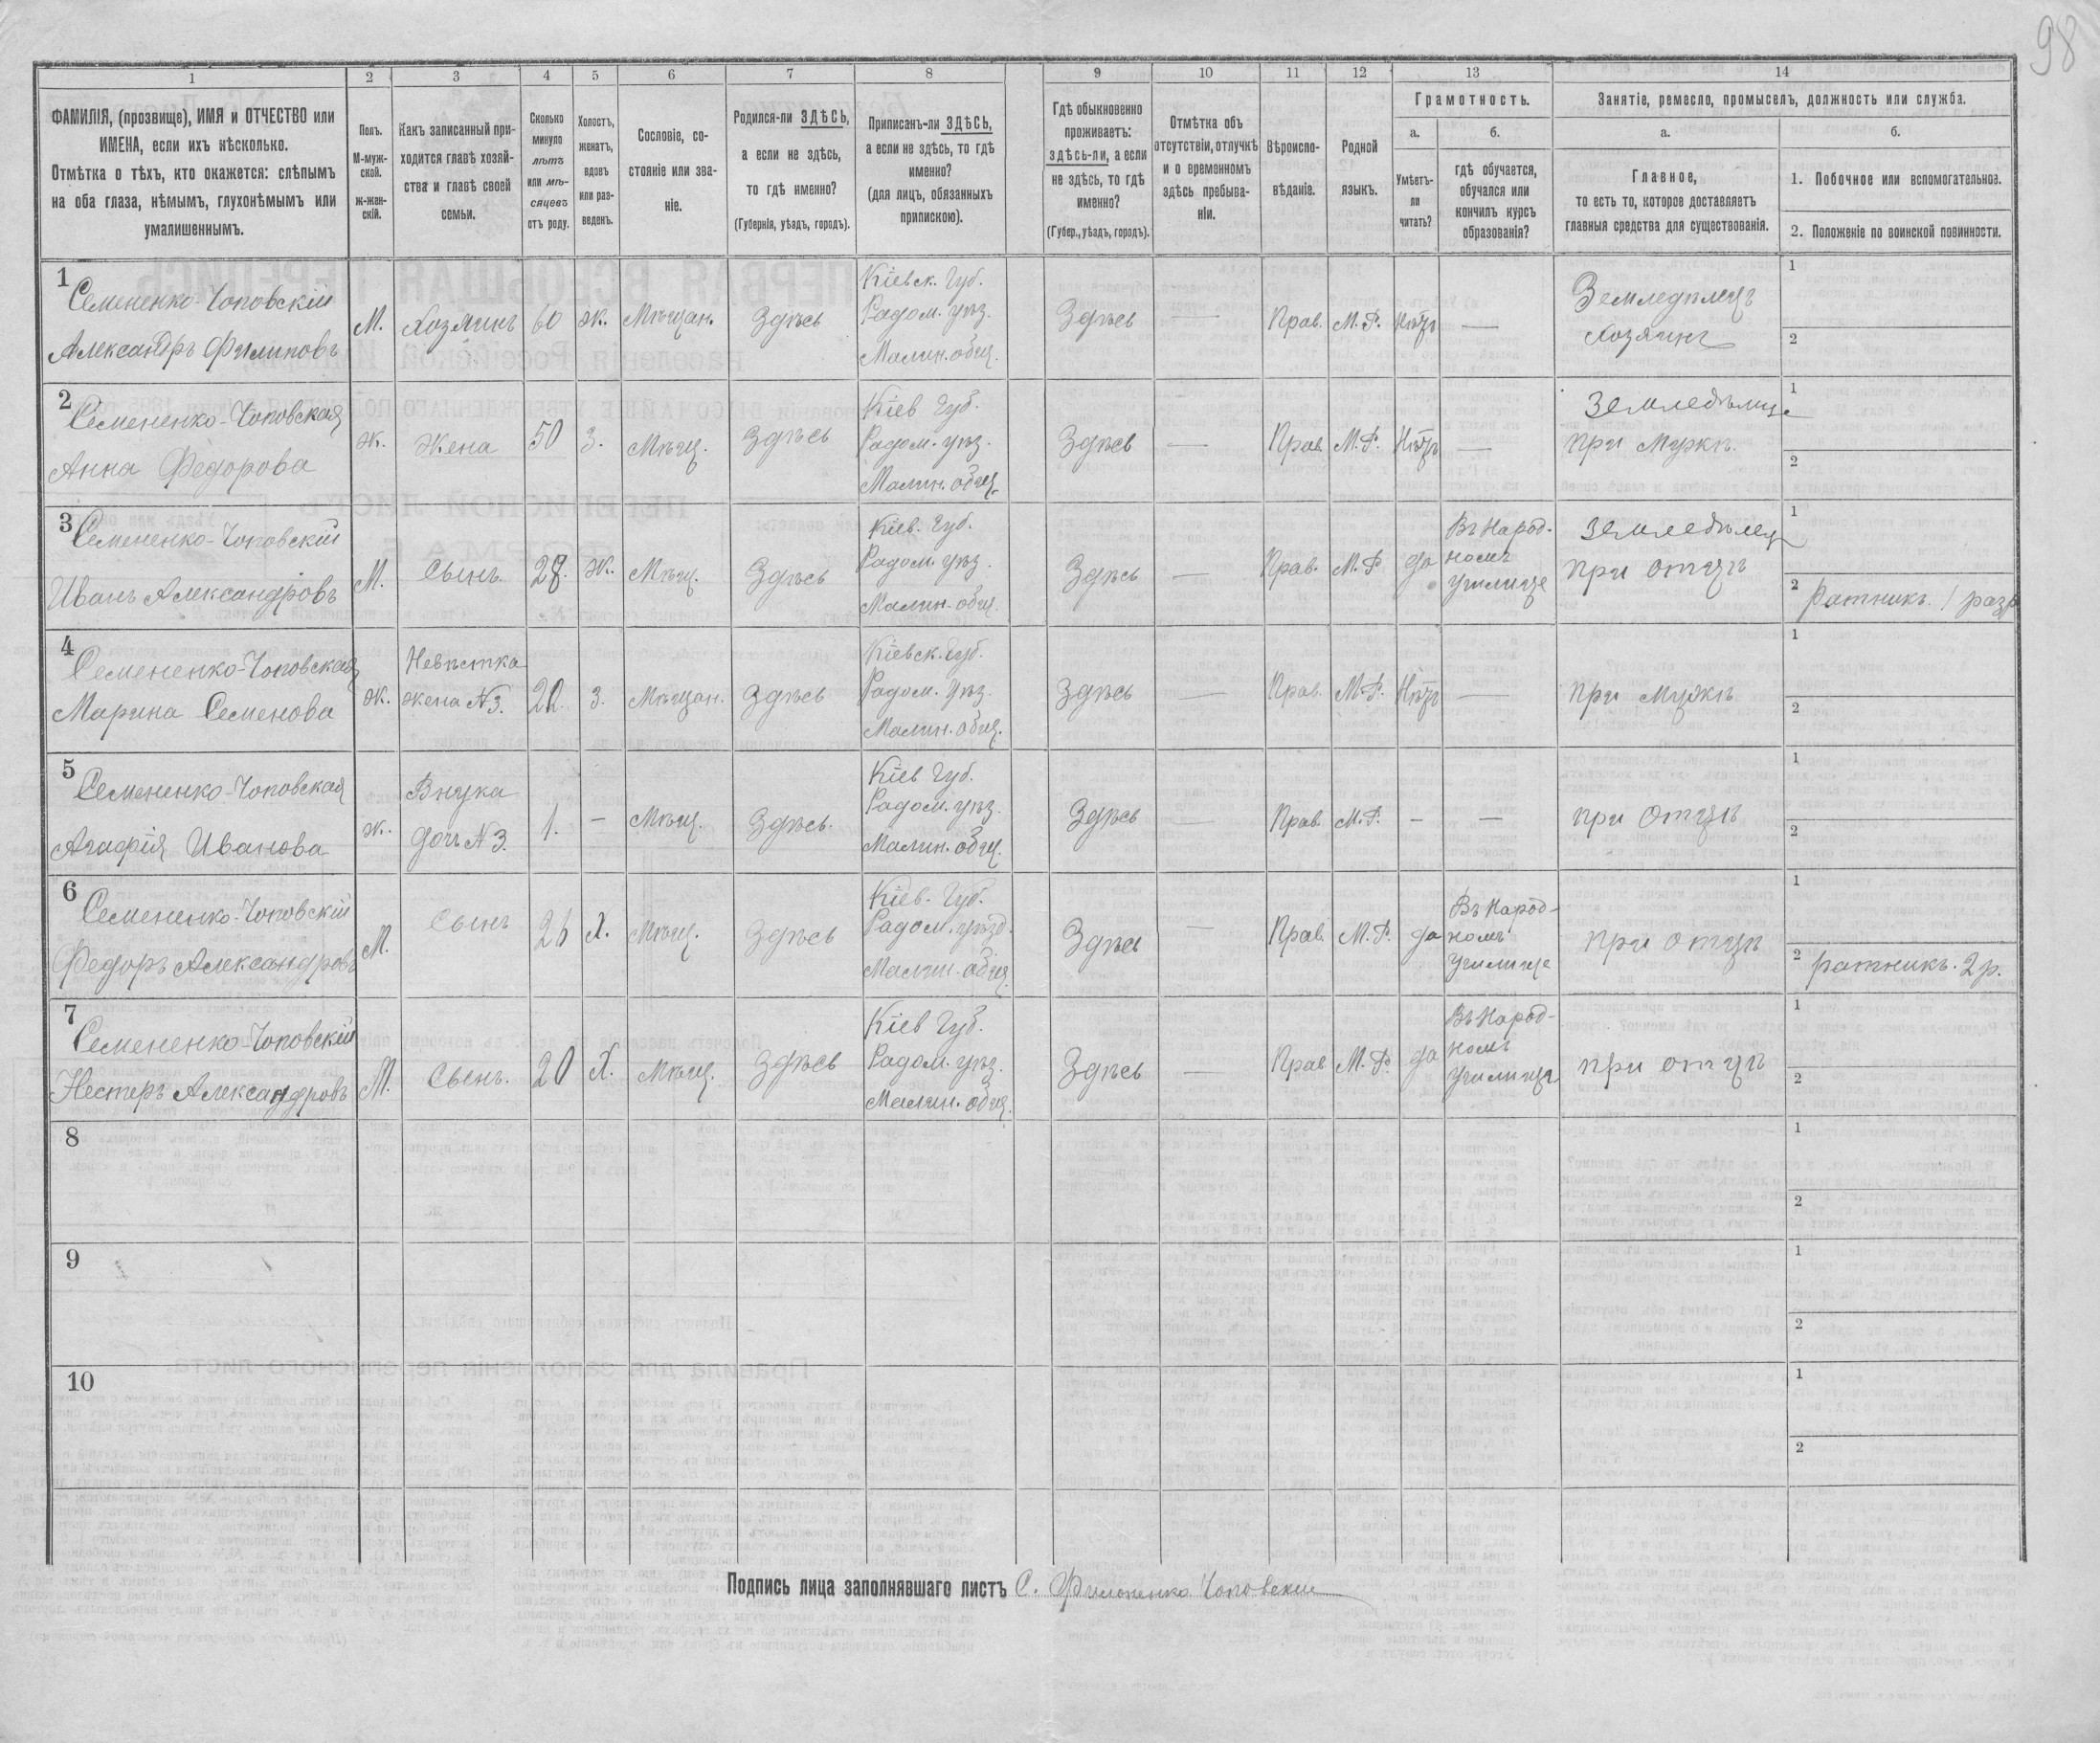 98
1 2 3 4 5 6 7 8 9 10 11 12 13 14
ФАМИЛІЯ, (прозвище), ИМЯ и ОТЧЕСТВО или
ИМЕНА, если ихъ нѣсколько.
Отмѣтка о тѣхъ, кто окажется: слѣпымъ
на оба глаза, нѣмымъ, глухонѣмымъ или
умалишеннымъ.
Полъ.
М-муж-
ской.
ж-жен-
скій.
Какъ записанный при-
ходится главѣ хозяй-
ства и главѣ своей
семьи.
Сколько
минуло
лѣтъ
или мѣ-
сяцевъ
отъ роду.
Холостъ,
женатъ,
вдовъ
или раз-
веденъ.
Сословіе, со-
стояніе или зва-
ніе.
Родился-ли ЗДѢСЬ,
а если не здѣсь,
то гдѣ именно?
(Губернія, уѣздъ, городъ).
Приписанъ-ли ЗДѢСЬ,
а если не здѣсь, то гдѣ
именно?
(для лицъ, обязанныхъ
припискою).
Гдѣ обыкновенно
проживаетъ:
здѣсь-ли, а если
не здѣсь, то гдѣ
именно?
(Губер., уѣздъ, городъ).
Отмѣтка объ
отсутствіи, отлучкѣ
и о временномъ
здѣсь пребыва-
ніи.
Вѣроиспо-
вѣданіе.
Родной
языкъ.
Грамотность.
а.
Умѣетъ-
ли
читать?
б.
гдѣ обучается,
обучался или
кончилъ курсъ
образованія?
Занятіе, ремесло, промыселъ, должность или служба.
а.
Главное,
то есть то, которое доставляетъ
главныя средства для существованія.
б.
1. Побочное или вспомогательное.
2. Положеніе по воинской повинности.
1
Семененко-Чоповскій
Александръ Филиповъ
М.
Хозяинъ
60
ж.
Мѣщан.
Здѣсь
Кіевск. Губ.
Радом. уѣз.
Малин. общ.
Здѣсь
—
Прав.
М.Р.
Нѣтъ
—
Земледѣлецъ
хозяинъ
1
2
2
Семененко-Чоповская
Анна Федорова
ж.
Жена
50
З.
Мѣщ.
Здѣсь
Кіев Губ.
Радом. уѣз.
Малин. общ.
Здѣсь
—
Прав.
М.Р.
Нѣтъ
—
Земледѣлица
при мужѣ.
1
2
3
Семененко-Чоповскій
Иванъ Александровъ
М.
Сынъ
28.
ж.
Мѣщ.
Здѣсь
Кіев. Губ.
Радом. уѣз.
Малин. общ.
Здѣсь
—
Прав.
М.Р.
да
Въ Народ-
номъ
Училище
Земледѣлец
при отцѣ
1
2 Ратникъ. 1 разр
4
Семененко-Чоповская
Марина Семенова
ж.
Невѣстка
жена №3.
22.
З.
Мѣщан.
Здѣсь
Кіевск. Губ.
Радом. Уѣз.
Малин. общ.
Здѣсь
—
Прав.
М.Р.
Нѣтъ
—
при мужѣ
1
2
5
Семененко-Чоповская
Агафія Иванова
ж.
Внука
дочь №3.
1.
—
Мѣщ.
Здѣсь.
Кіев Губ.
Радом. уѣз.
Малин. общ.
Здѣсь
Прав.
М.Р.
—
—
при Отцѣ
1
2
6
Семененко-Чоповскій
Федоръ Александровъ
М.
Сынъ
26
Х.
Мѣщ.
Здѣсь
Кіев. Губ.
Радом. уѣзд.
Малин. общ.
Здѣсь
—
Прав.
М.Р.
да
Въ Народ-
номъ
Училище
при отцѣ
1
2 ратникъ. 2 р.
7
Семененко-Чоповскій
Нестеръ Александровъ
М.
Сынъ.
20
Х.
Мѣщ.
Здѣсь
Кіев Губ.
Радом. уѣз.
Малин. общ.
Здѣсь
—
Прав
М.Р.
да
Въ Народ-
номъ
Училище
при отцѣ
1
2
8
1
2
9
1
2
10
1
2
Подпись лица заполнявшаго листъ С. Филоненко Чоповский